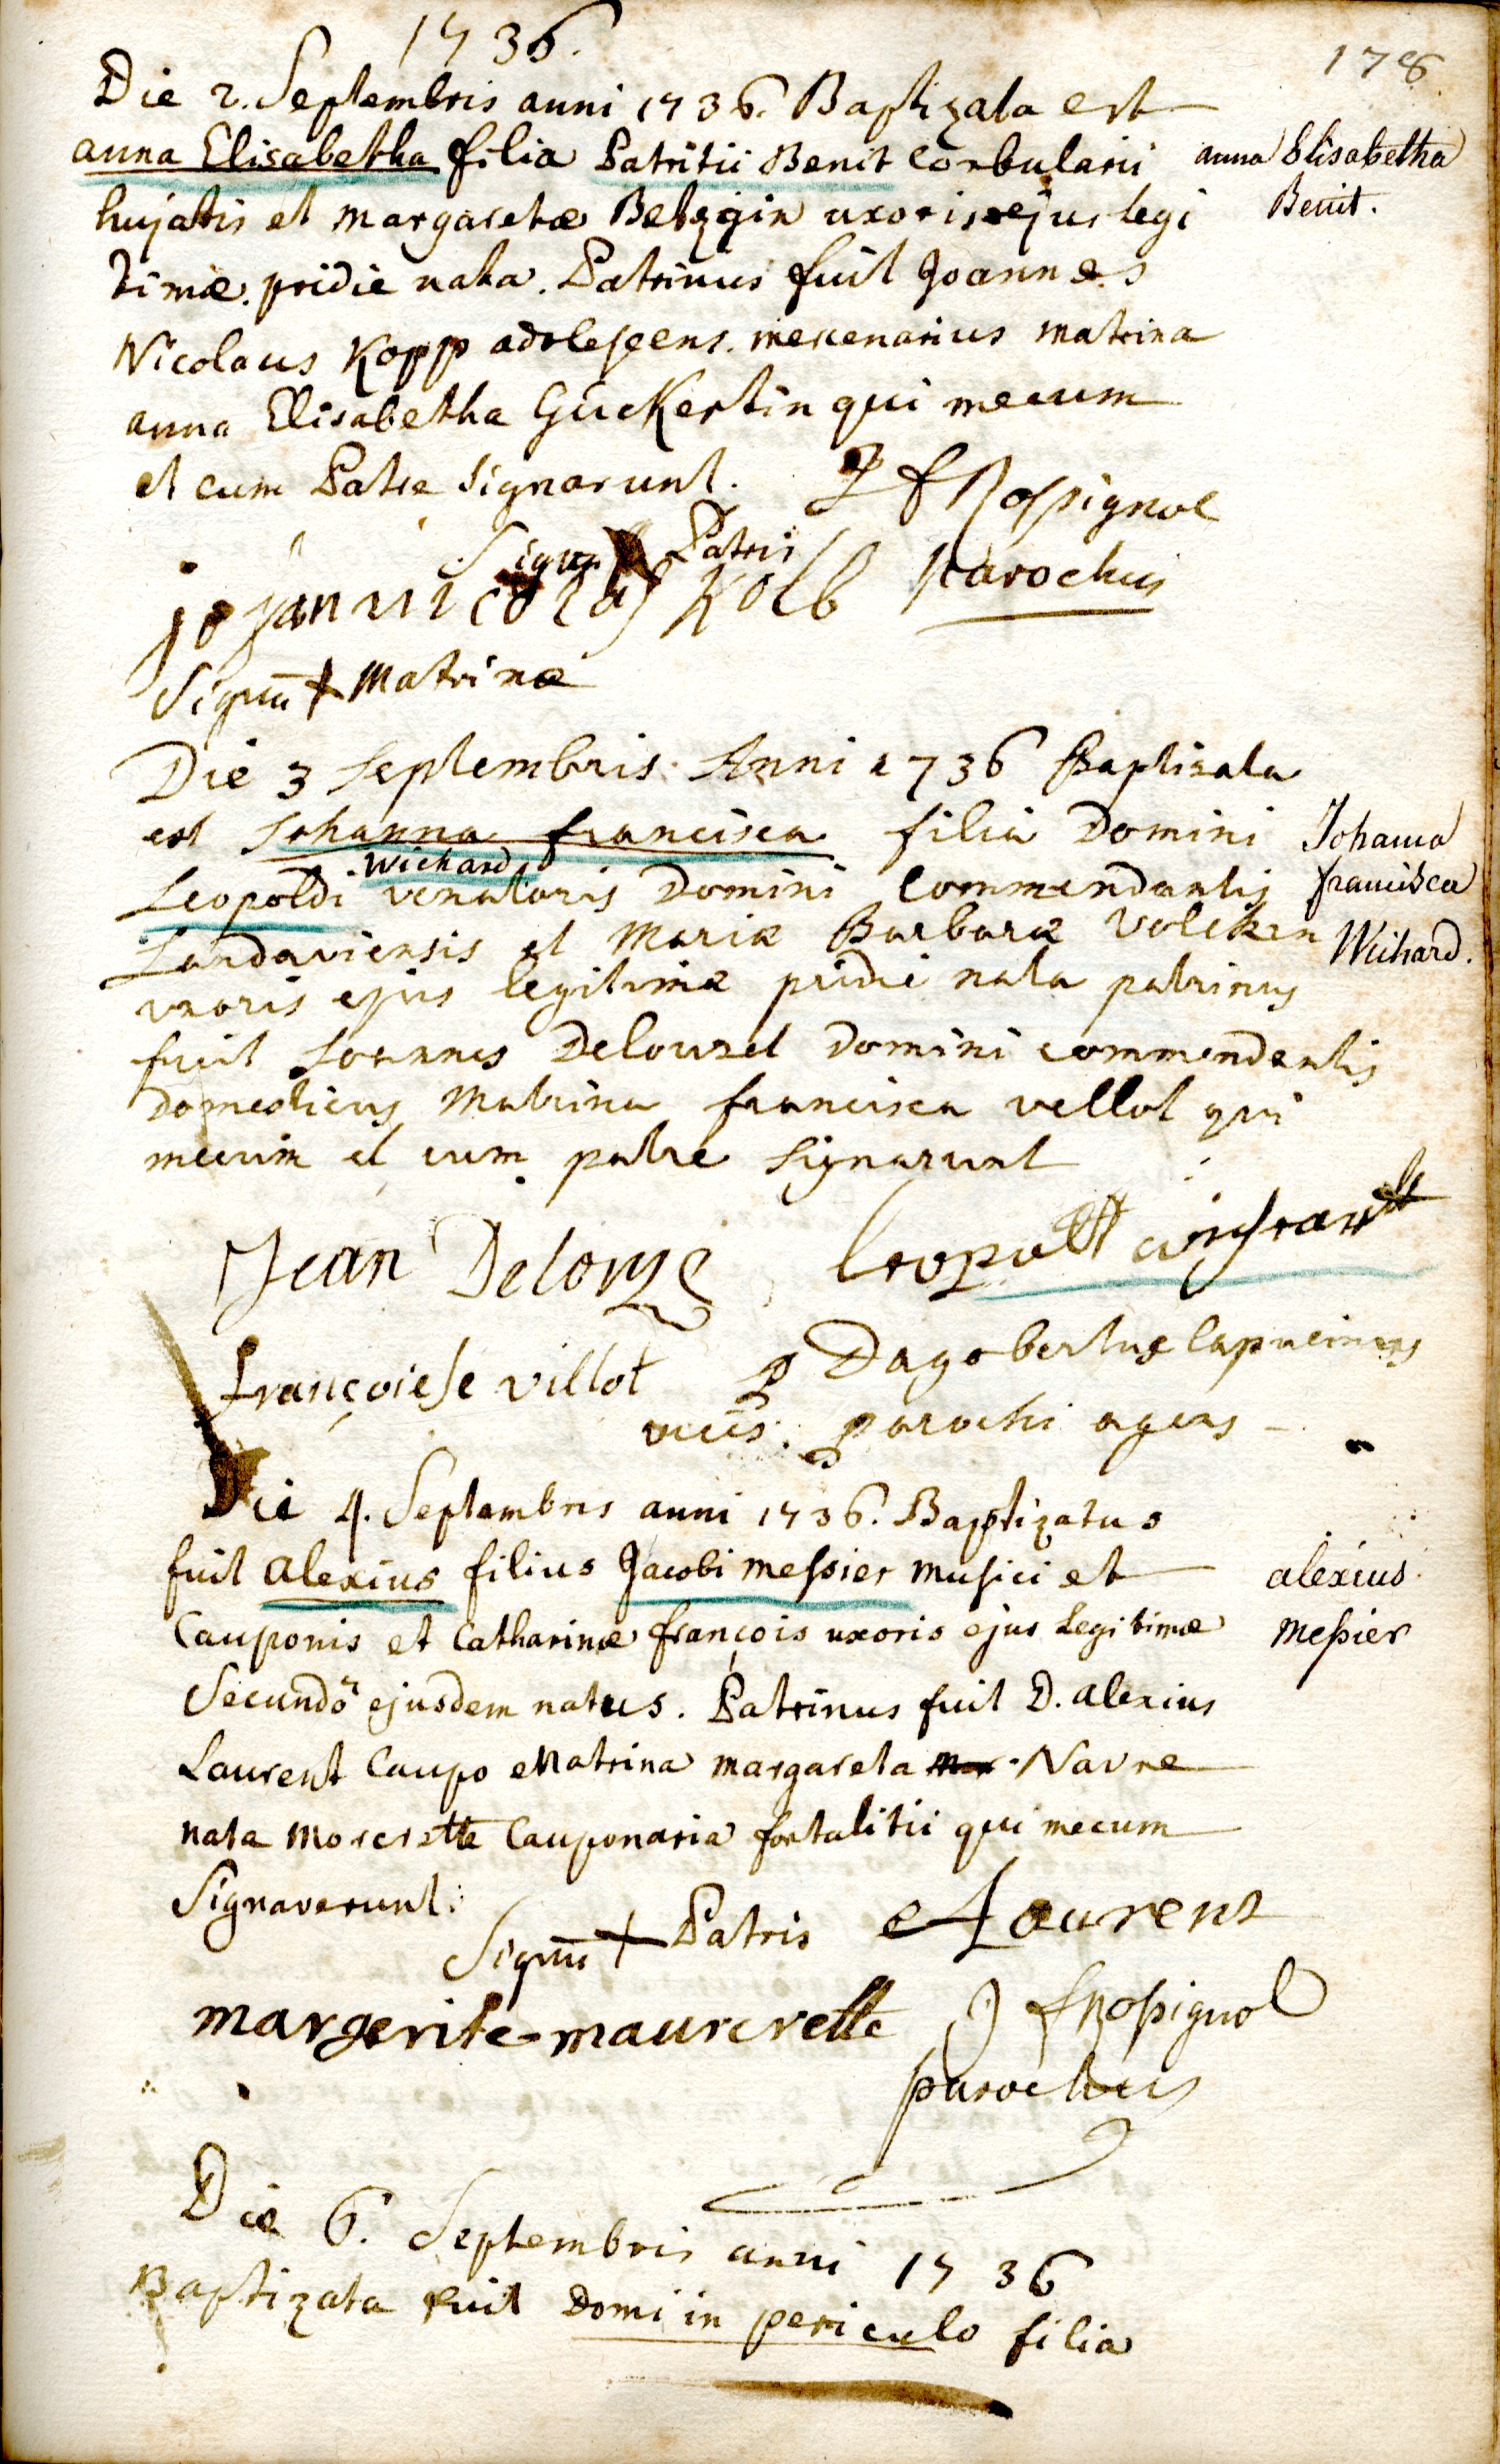 1736.
178
Die 2. Septembris anni 1736. Baptizata est
anna Elisabetha filia Patritii Benit Corbularii
anna Elisabetha
hujatis et Margaretæ Betzgin uxoris ejus legi
Benit.
timæ. pridie nata. Patrinus fuit Joannes
Nicolaus Kopp adolescens. mercenarius matrina
anna Elisabetha Guckertin qui mecum
et cum Patre signarunt.
J f Rossignol
Parochus
Signū Patris
johan nicolas Kolb
Signū + Matrinæ
Die 3 Septembris Anni 1736 Baptizata
est Johanna francisca filia Domini
Johanna
Wichard
Leopoldi venatoris Domini Commendantis
francisca
Landaviensis et Mariæ Barbaræ Volcken
Wichard.
uxoris ejus legitimæ pridie nata patrinus
fuit Joannes Delouzel Domini commendantis
domesticus Matrina francisca vellot qui
mecum et cum patre signarunt
Jean Delorze
Leopoltt
françoiese villot
P Dagobertus Capucinus
vices parochi agens
Die 4. Septembris anni 1736. Baptizatus
fuit alexius filius Jacobi messier musici et
alexius
Cauponis et Catharinæ françois uxoris ejus Legitimæ
messier
Secundò ejusdem natus. Patrinus fuit D. alexius
Laurent Caupo Matrina margareta Navre
nata Morcrette Cauponaria fortalitii qui mecum
Signaverunt:
Signū + Patris
A Laurent
margerite maurcrette
J f Rossignol
parochus
Die 6. Septembris anni 1736
Baptizata fuit Domi in periculo filia